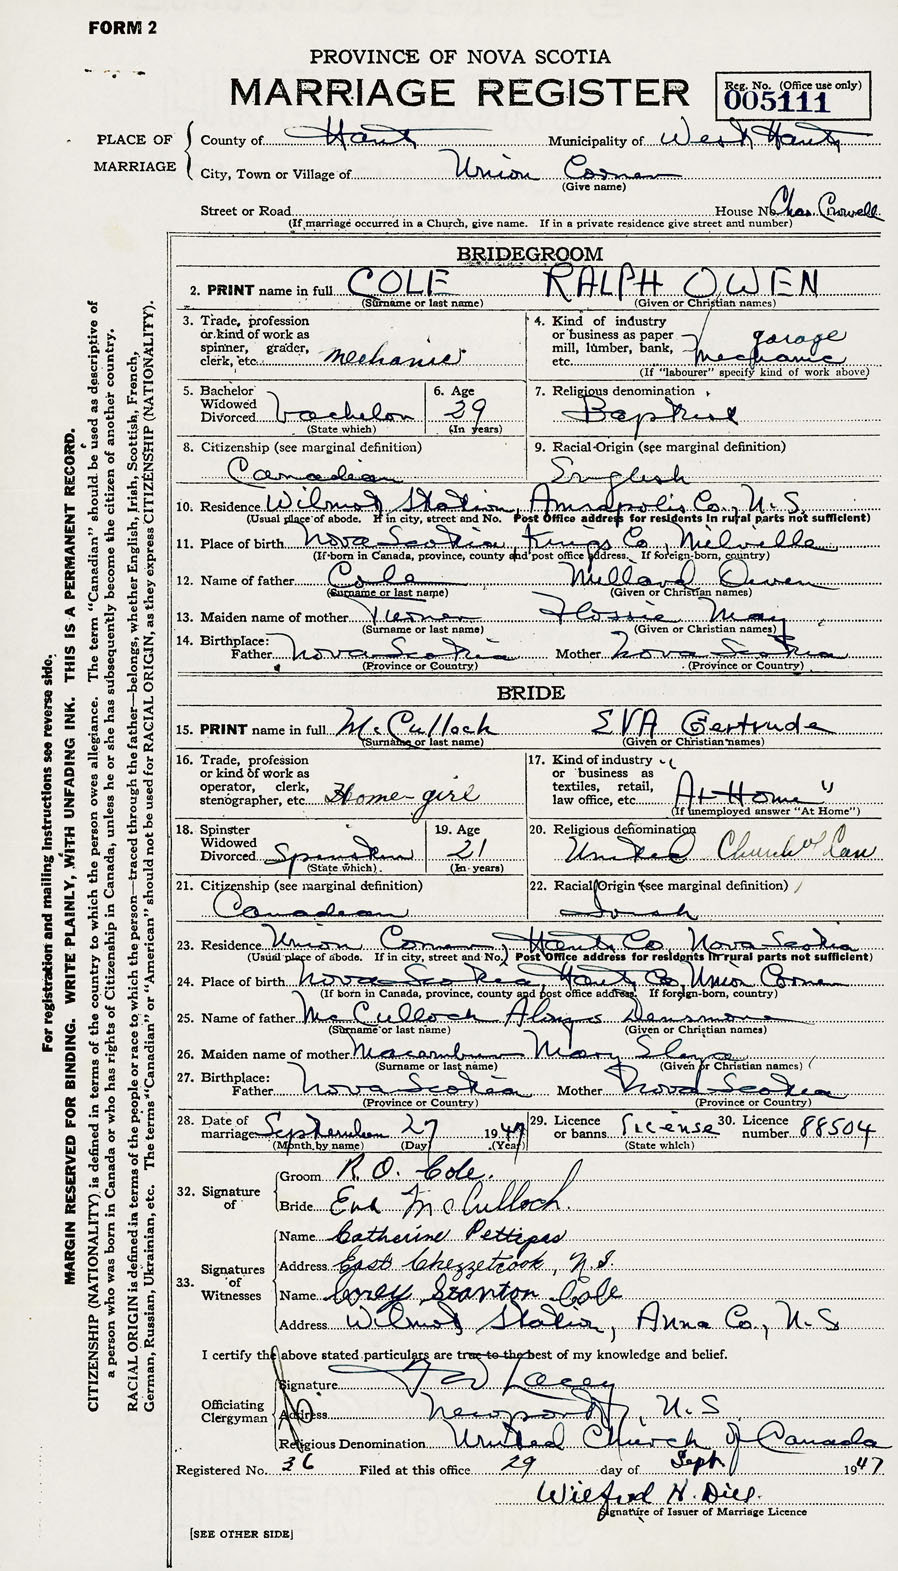 FORM 2
PROVINCE OF NOVA SCOTIA
MARRIAGE REGISTER
Reg. No. (Office use only)
005111
PLACE OF MARRIAGE
County of Hants Municipality of West Hants
City, Town or Village of Union Corner
(Give name)
Street or Road House No. Chas. Crowell
(If marriage occurred in a Church, give name. If in a private residence give street and number)
BRIDEGROOM
2. PRINT name in full COLE RALPH OWEN
(Surname or last name) (Given or Christian names)
3. Trade, profession or kind of work as spinner, grader, clerk, etc. mechanic
4. Kind of industry or business as paper mill, lumber, bank, etc. garage mechanic
(If "labourer" specify kind of work above)
5. Bachelor Widowed Divorced bachelor
(State which)
6. Age 29
(In years)
7. Religious denomination Baptist
8. Citizenship (see marginal definition) Canadian
9. Racial Origin (see marginal definition) English
10. Residence Wilmot Station, Annapolis Co., N.S.
(Usual place of abode. If in city, street and No. Post Office address for residents in rural parts not sufficient)
11. Place of birth Nova Scotia, Kings Co., Melville
(If born in Canada, province, county and post office address. If foreign-born, country)
12. Name of father Cole Millard Owen
(Surname or last name) (Given or Christian names)
13. Maiden name of mother Flossie May
(Surname or last name) (Given or Christian names)
14. Birthplace: Father Nova Scotia Mother Nova Scotia
(Province or Country) (Province or Country)
BRIDE
15. PRINT name in full McCulloch EVA Gertrude
(Surname or last name) (Given or Christian names)
16. Trade, profession or kind of work as operator, clerk, stenographer, etc. Home-girl
17. Kind of industry or business as textiles, retail, law office, etc. "At Home"
(If unemployed answer "At Home")
18. Spinster Widowed Divorced Spinster
(State which)
19. Age 21
(In years)
20. Religious denomination United Church of Can
21. Citizenship (see marginal definition) Canadian
22. Racial Origin (see marginal definition) Irish
23. Residence Union Corner, Hants Co, Nova Scotia
(Usual place of abode. If in city, street and No.) Post Office address for residents in rural parts not sufficient)
24. Place of birth Nova Scotia, Hants Co, Union Corner
(If born in Canada, province, county and post office address. If foreign-born, country)
25. Name of father McCulloch Densmore
(Surname or last name) (Given or Christian names)
26. Maiden name of mother Macumber Mary
(Surname or last name) (Given or Christian names)
27. Birthplace: Father Nova Scotia Mother Nova Scotia
(Province or Country) (Province or Country)
28. Date of marriage September 27 1947
(Month by name) (Day) (Year)
29. Licence or banns license
(State which)
30. Licence number 88504
32. Signature of
Groom R. O. Cole.
Bride Eva McCulloch.
33. Signatures of Witnesses
Name Catherine Pettipas
Address East Chezzetcook, N.S.
Name Stanton Cole
Address Wilmot Station, Anna Co., N.S
I certify the above stated particulars are true to the best of my knowledge and belief.
Officiating Clergyman
Signature Lacey
Address Newport, N.S
Religious Denomination United Church of Canada
Registered No. 36 Filed at this office 29 day of Sept. 1947
Wilfred H. Dill.
Signature of Issuer of Marriage Licence
[SEE OTHER SIDE]
For registration and mailing instructions see reverse side.
MARGIN RESERVED FOR BINDING. WRITE PLAINLY, WITH UNFADING INK. THIS IS A PERMANENT RECORD.
CITIZENSHIP (NATIONALITY) is defined in terms of the country to which the person owes allegiance. The term "Canadian" should be used as descriptive of
a person who was born in Canada or who has rights of Citizenship in Canada, unless he or she has subsequently become the citizen of another country.
RACIAL ORIGIN is defined in terms of the people or race to which the person—traced through the father—belongs, whether English, Irish, Scottish, French,
German, Russian, Ukrainian, etc. The terms "Canadian" or "American" should not be used for RACIAL ORIGIN, as they express CITIZENSHIP (NATIONALITY).